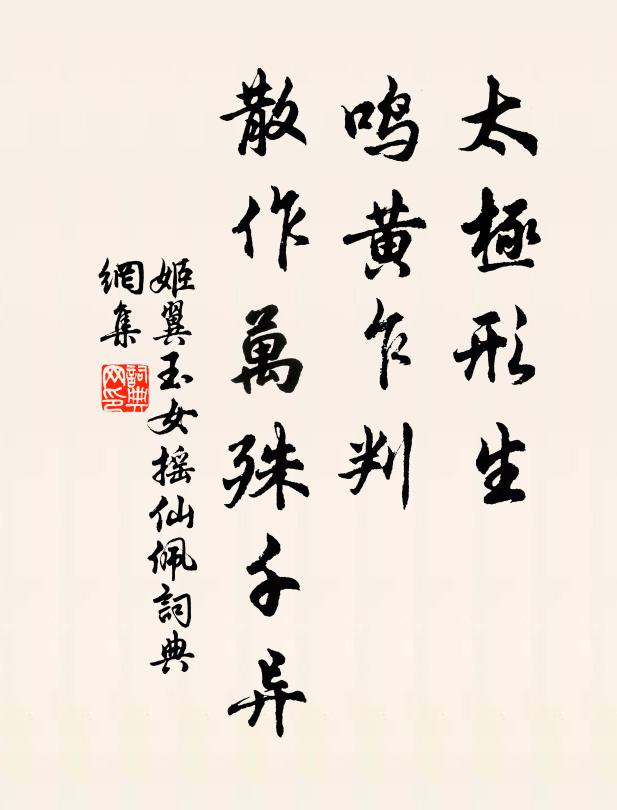 太極形生
鸣黄乍判
散作萬殊千异
姬翼玉女摇仙佩詞典
網集
詞典
网印